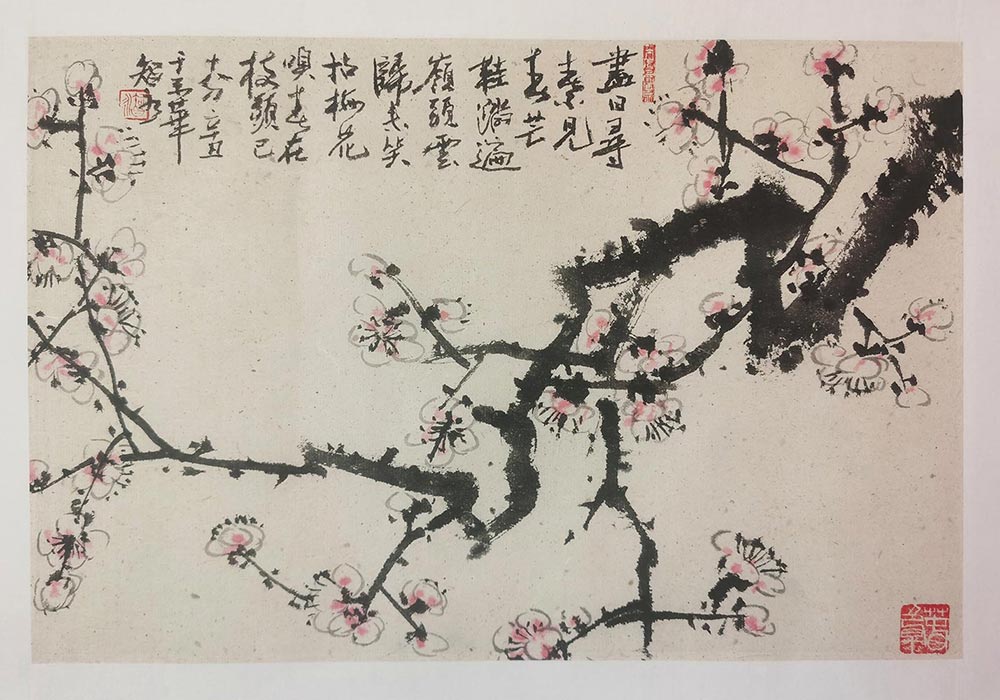 盡日尋
春不見
春芒
鞋踏遍
嶺頭雲
歸來笑
拈梅花
嗅春在
枝頭已
十分